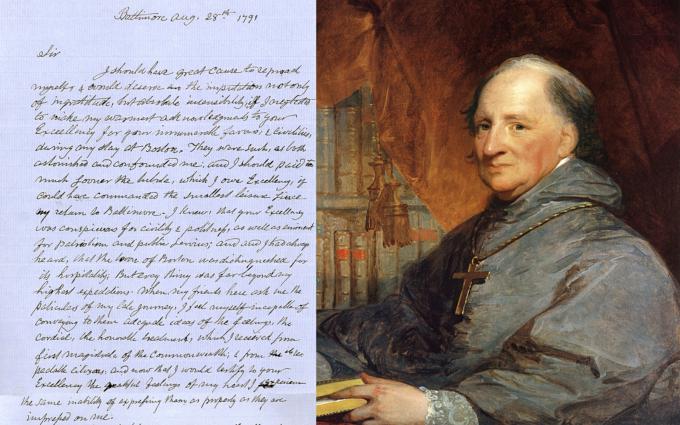 Baltimore Aug. 28th 1791
Sir
I should have great cause to reproach
myself, & would deserve an the imputation not only
of ingratitude, but absolute insensibility, if I neglected
to make my warmest acknowledgments to your
Excellency for your innumerable favors & civilities,
during my stay at Boston. They were such, as both
astonished and confounded me: and I should paid to
much sooner the tribute, which I owe Excellency, if
could have commanded the smallest leisure since
my return to Baltimore. I knew, that your Excellency
was conspicuous for civility & politeness, as well as eminent
for patriotism and public services; and and I had always
heard, that the town of Boston was distinguished for
its hospitality: But every thing was far beyond my
highest expectations. When my friends here ask me the
particulars of my late journey, I feel myself incapable of
conveying to them adequate ideas of the feelings, the
cordial, the honorable treatment, which I received from
first magistrate of the Commonwealth; & from the its res
pectable citizens: and now that I would testify to your
Excellency the grateful feelings of my heart, I experience
the same inability of expressing them as properly as they are
impressed on me.